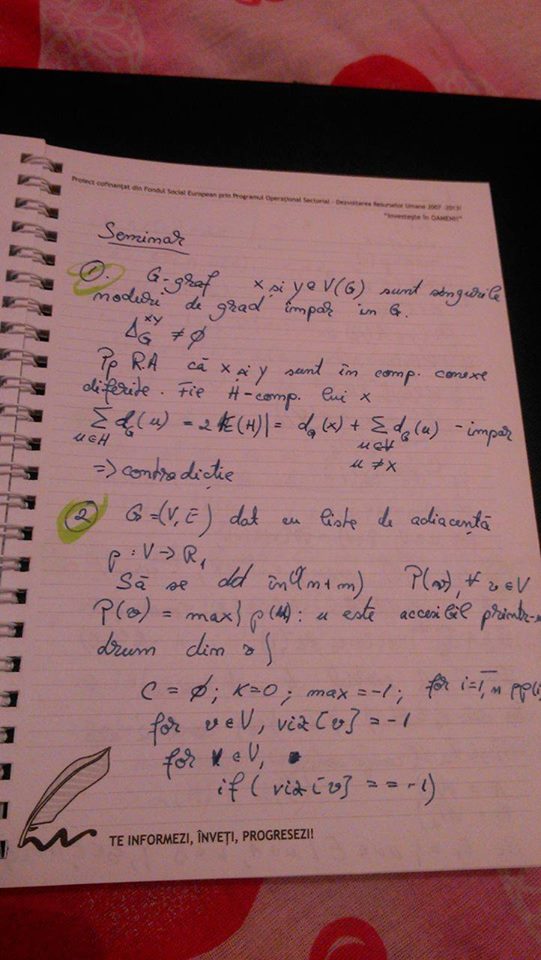 Proiect cofinanțat din Fondul Social European prin Programul Operațional Sectorial - Dezvoltarea Resurselor Umane 2007 -2013!
"Investește în OAMENI!"
Seminar
1. G=graf x și y ∈ V(G) sunt singurile
noduri de grad impar în G.
Δ_G^{xy} ≠ ∅
Pp R.A că x și y sunt în comp. conexe
diferite. Fie H-comp. lui x
∑_{u∈H} d_G(u) = 2|E(H)| = d_G(x) + ∑_{u∈H, u≠x} d_G(u) - impar
=> contradicție
2 G=(V,E) dat cu liste de adiacență
p : V -> R,
Să se dd în O(n+m) P(v), ∀ v∈V
P(v) = max{ p(u) : u este accesibil
drum din v}
C = ∅; K=0; max = -1; for i=1,n
for v∈V, viz[v] = -1
for v∈V,
if( viz[v] == -1)
TE INFORMEZI, ÎNVEȚI, PROGRESEZI!